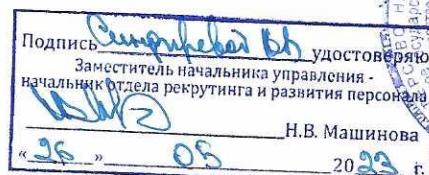 Подпись удостоверяю
Заместитель начальника управления -
начальник отдела рекрутинга и развития персонала
Н.В. Машинова
« 26 » 05 2023 г.